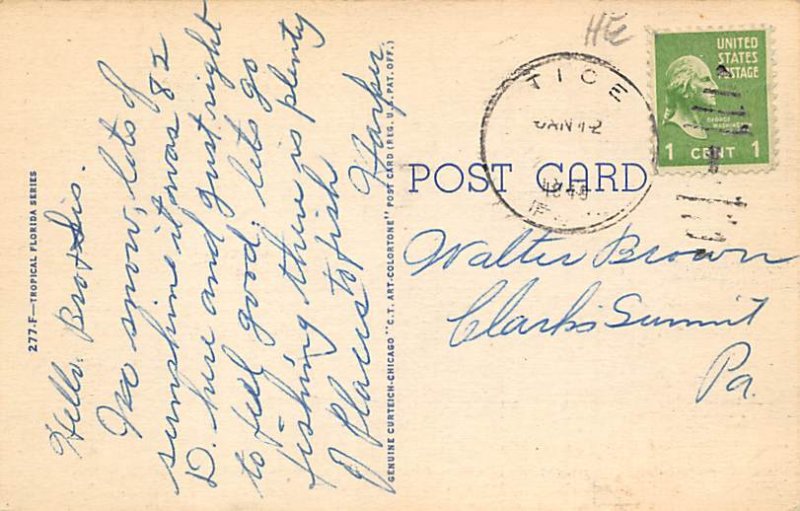 277-F—TROPICAL FLORIDA SERIES
Hello. Bro & Sis.
No snow, lots of
sunshine it was 82
D. here and just right
to feel good. lets go
fishing there is plenty
of places to fish
Harper
GENUINE CURTEICH-CHICAGO "C.T. ART-COLORTONE" POST CARD (REG. U.S. PAT. OFF.)
HE
TICE
JAN 12
UNITED
STATES
POSTAGE
GEORGE
WASHINGTON
1 CENT 1
POST CARD
Walter Brown
Clark's Summit
Pa.